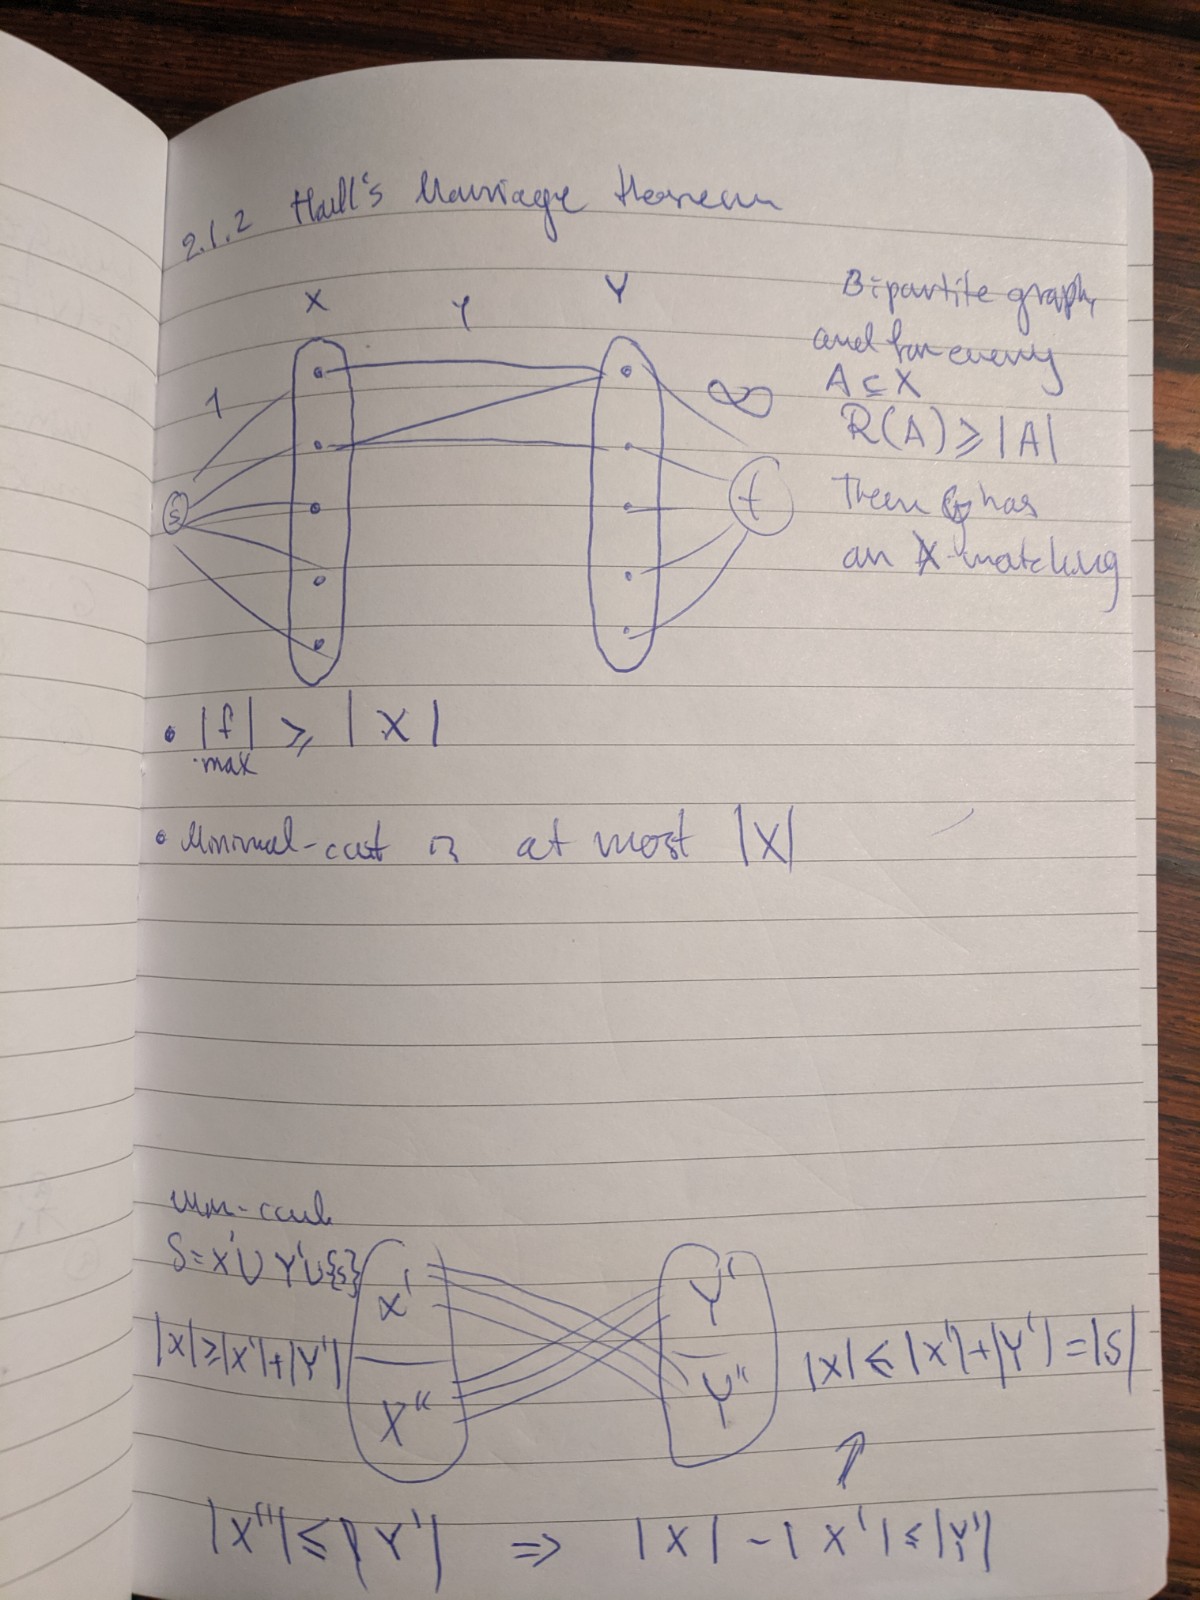 2.1.2 Hall's Marriage theorem
X
Y
1
1
∞
s
t
Bipartite graph,
and for every
A ⊆ X
R(A) ≥ |A|
Then G has
an X-matching
• |f| ≥ |X|
max
• Minimal-cut is at most |X|
min-cut
S = X' ∪ Y' ∪ {s}
X'
Y'
|X| ≥ |X'| + |Y'|
|X| ≤ |X'| + |Y'| = |S|
X''
Y''
|X''| ≤ |Y'| ⇒ |X| - |X'| ≤ |Y'|